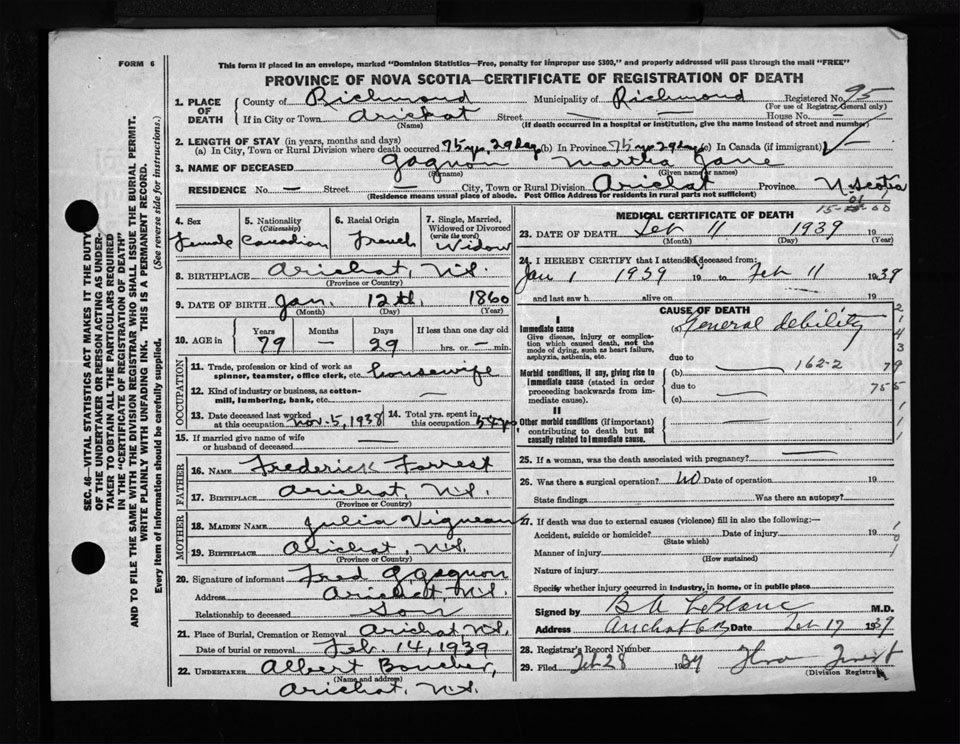 FORM 6
This form if placed in an envelope, marked "Dominion Statistics—Free, penalty for improper use $300," and properly addressed will pass through the mail "FREE"
PROVINCE OF NOVA SCOTIA—CERTIFICATE OF REGISTRATION OF DEATH
1. PLACE OF DEATH
County of Richmond Municipality of Richmond Registered No. 95
(For use of Registrar General only)
If in City or Town Arichat Street — House No. —
(Name) (If death occurred in a hospital or institution, give the name instead of street and number)
2. LENGTH OF STAY (in years, months and days)
(a) In City, Town or Rural Division where death occurred 79 yrs, 29 days (b) In Province 79 yrs 29 days (c) In Canada (if immigrant) —
3. NAME OF DECEASED Gagnon Martha Jane
(Surname) (Given name or names)
RESIDENCE No. — Street — City, Town or Rural Division Arichat Province N. Scotia
(Residence means usual place of abode. Post Office Address for residents in rural parts not sufficient)
4. Sex Female
5. Nationality (Citizenship) Canadian
6. Racial Origin French
7. Single, Married, Widowed or Divorced (write the word) Widow
8. BIRTHPLACE Arichat, N.S.
(Province or Country)
9. DATE OF BIRTH Jan. 12th, 1860
(Month) (Day) (Year)
10. AGE in
Years Months Days If less than one day old
79 — 29 hrs. or — min.
OCCUPATION
11. Trade, profession or kind of work as spinner, teamster, office clerk, etc. housewife
12. Kind of industry or business, as cotton-mill, lumbering, bank, etc. —
13. Date deceased last worked at this occupation Nov. 5, 1938
14. Total yrs. spent in this occupation 54 yrs
15. If married give name of wife or husband of deceased —
FATHER
16. NAME Frederick Forrest
17. BIRTHPLACE Arichat, N.S.
(Province or Country)
MOTHER
18. MAIDEN NAME Julia Vigneau
19. BIRTHPLACE Arichat, N.S.
(Province or Country)
20. Signature of informant Fred G Gagnon
Address Arichat, N.S.
Relationship to deceased Son
21. Place of Burial, Cremation or Removal Arichat N.S.
Date of burial or removal Feb. 14, 1939
22. UNDERTAKER Albert Boucher,
(Name and address)
Arichat, N.S.
MEDICAL CERTIFICATE OF DEATH
23. DATE OF DEATH Feb 11 1939 19
(Month) (Day) (Year)
24. I HEREBY CERTIFY that I attended deceased from:
Jan 1 1939 19 to Feb 11 1939
and last saw h alive on 19
CAUSE OF DEATH
I
Immediate cause
Give disease, injury or complication which caused death, not the mode of dying, such as heart failure, asphyxia, asthenia, etc.
(a) General debility
due to
Morbid conditions, if any, giving rise to immediate cause (stated in order proceeding backwards from immediate cause).
(b) 162-2
due to
(c)
II
Other morbid conditions (if important) contributing to death but not causally related to immediate cause.
25. If a woman, was the death associated with pregnancy? —
26. Was there a surgical operation? No Date of operation 19
State findings Was there an autopsy?
27. If death was due to external causes (violence) fill in also the following:—
Accident, suicide or homicide? Date of injury 19
(State which)
Manner of injury
(How sustained)
Nature of injury
Specify whether injury occurred in industry, in home, or in public place
Signed by B A LeBlanc M.D.
Address Arichat Date Feb 17 1939
28. Registrar's Record Number
29. Filed Feb 28 1939
(Division Registrar)
SEC. 46—VITAL STATISTICS ACT MAKES IT THE DUTY
OF THE UNDERTAKER OR PERSON ACTING AS UNDERTAKER TO OBTAIN ALL THE PARTICULARS REQUIRED
IN THE "CERTIFICATE OF REGISTRATION OF DEATH"
AND TO FILE THE SAME WITH THE DIVISION REGISTRAR WHO SHALL ISSUE THE BURIAL PERMIT.
WRITE PLAINLY WITH UNFADING INK. THIS IS A PERMANENT RECORD.
Every item of information should be carefully supplied. (See reverse side for instructions.)